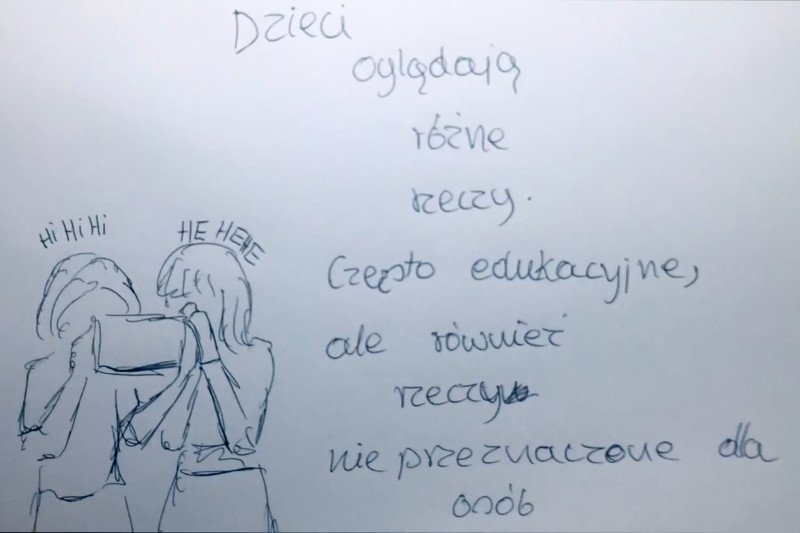 Dzieci
oglądają
różne
rzeczy.
Hi Hi Hi
HE HEHE
Często edukacyjne,
ale również
rzeczy
nie przeznaczone dla
osób